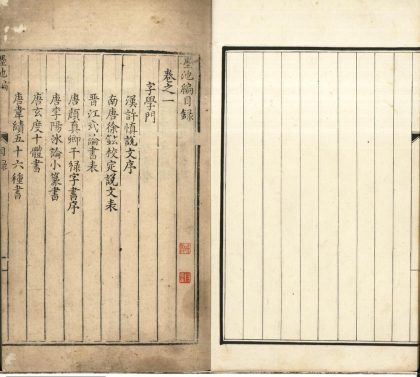 墨池編目錄
卷之一
字學門
漢許慎說文序
南唐徐鉉校定說文表
晉江式論書表
唐顏真卿干祿字書序
唐李陽冰論小篆書
唐玄度十體書
唐韋續五十六種書
墨池編
目錄